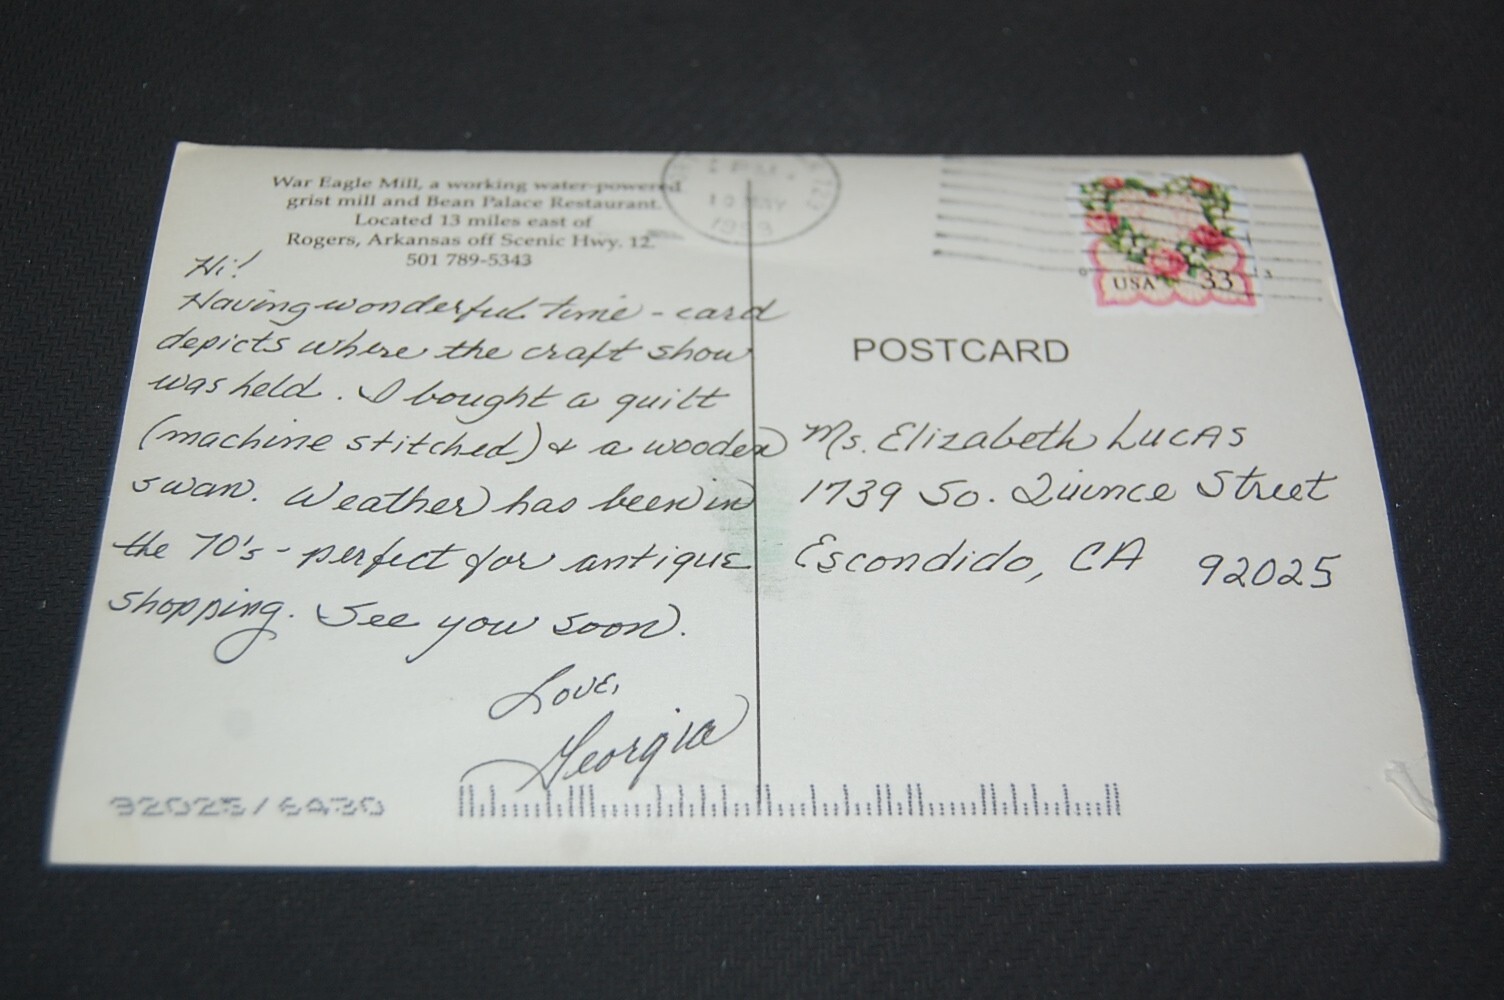 War Eagle Mill, a working water-powered
grist mill and Bean Palace Restaurant.
Located 13 miles east of
Rogers, Arkansas off Scenic Hwy. 12.
501 789-5343
Hi!
Having wonderful time - card
depicts where the craft show
was held. I bought a quilt
(machine stitched) & a wooden
swan. Weather has been in
the 70's - perfect for antique
shopping. See you soon.
Love,
Georgia
92025/6430
PM
10 MAY
1999
USA 33
POSTCARD
Ms. Elizabeth Lucas
1739 So. Quince Street
Escondido, CA 92025